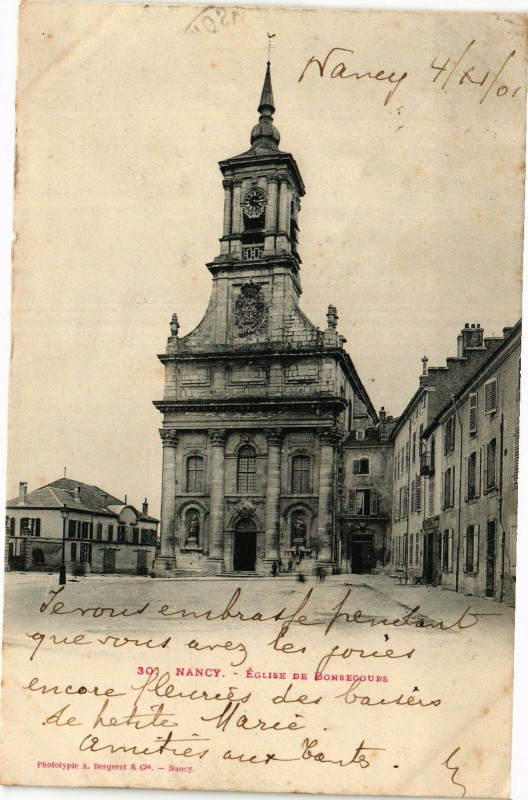 Nancy 4/XI/01
Je vous embrasse pendant
que vous avez les joues
30. NANCY. - ÉGLISE DE BONSECOURS
encore fleuries des baisers
de petite Marie.
Amitiés aux Tants.
Phototypie A. Bergeret & Cie. — Nancy.